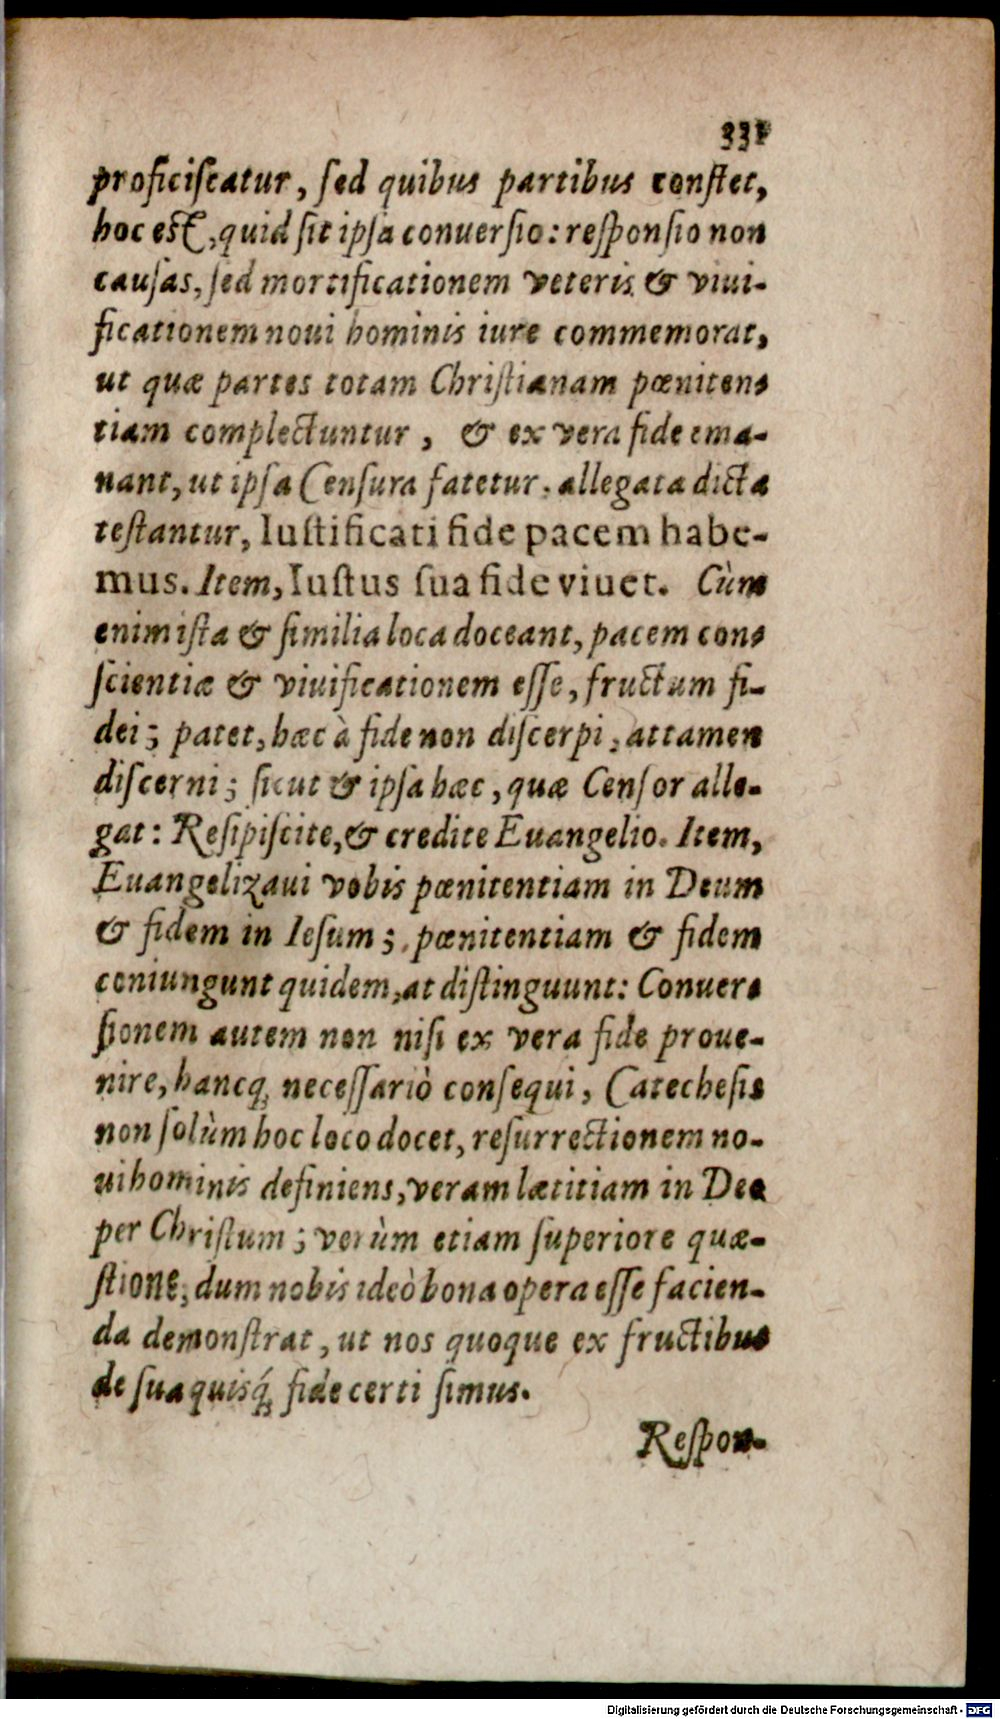 331
proficiſcatur, ſed quibus partibus conſtet,
hoc eſt, quid ſit ipſa conuerſio: reſponſio non
cauſas, ſed mortificationem veteris & viui-
ficationem noui hominis iure commemorat,
ut quæ partes totam Chriſtianam pœniten-
tiam complectuntur, & ex vera fide ema-
nant, ut ipſa Cenſura fatetur. allegata dicta
teſtantur, Iuſtificati fide pacem habe-
mus. Item, Iuſtus ſua fide viuet. Cùm
enim iſta & ſimilia loca doceant, pacem con-
ſcientiæ & viuificationem eſſe, fructum fi-
dei; patet, hæc à fide non diſcerpi, attamen
diſcerni; ſicut & ipſa hæc, quæ Cenſor alle-
gat: Reſipiſcite, & credite Euangelio. Item,
Euangelizaui vobis pœnitentiam in Deum
& fidem in Ieſum; pœnitentiam & fidem
coniungunt quidem, at diſtinguunt: Conuer-
ſionem autem non niſi ex vera fide proue-
nire, hancq́; neceſſariò conſequi, Catecheſis
non ſolùm hoc loco docet, reſurrectionem no-
ui hominis definiens, veram lætitiam in Deo
per Chriſtum; verùm etiam ſuperiore quæ-
ſtione, dum nobis ideò bona opera eſſe facien-
da demonſtrat, ut nos quoque ex fructibus
de ſua quisq́; fide certi ſimus.
Reſpon-
Digitalisierung gefördert durch die Deutsche Forschungsgemeinschaft - DFG